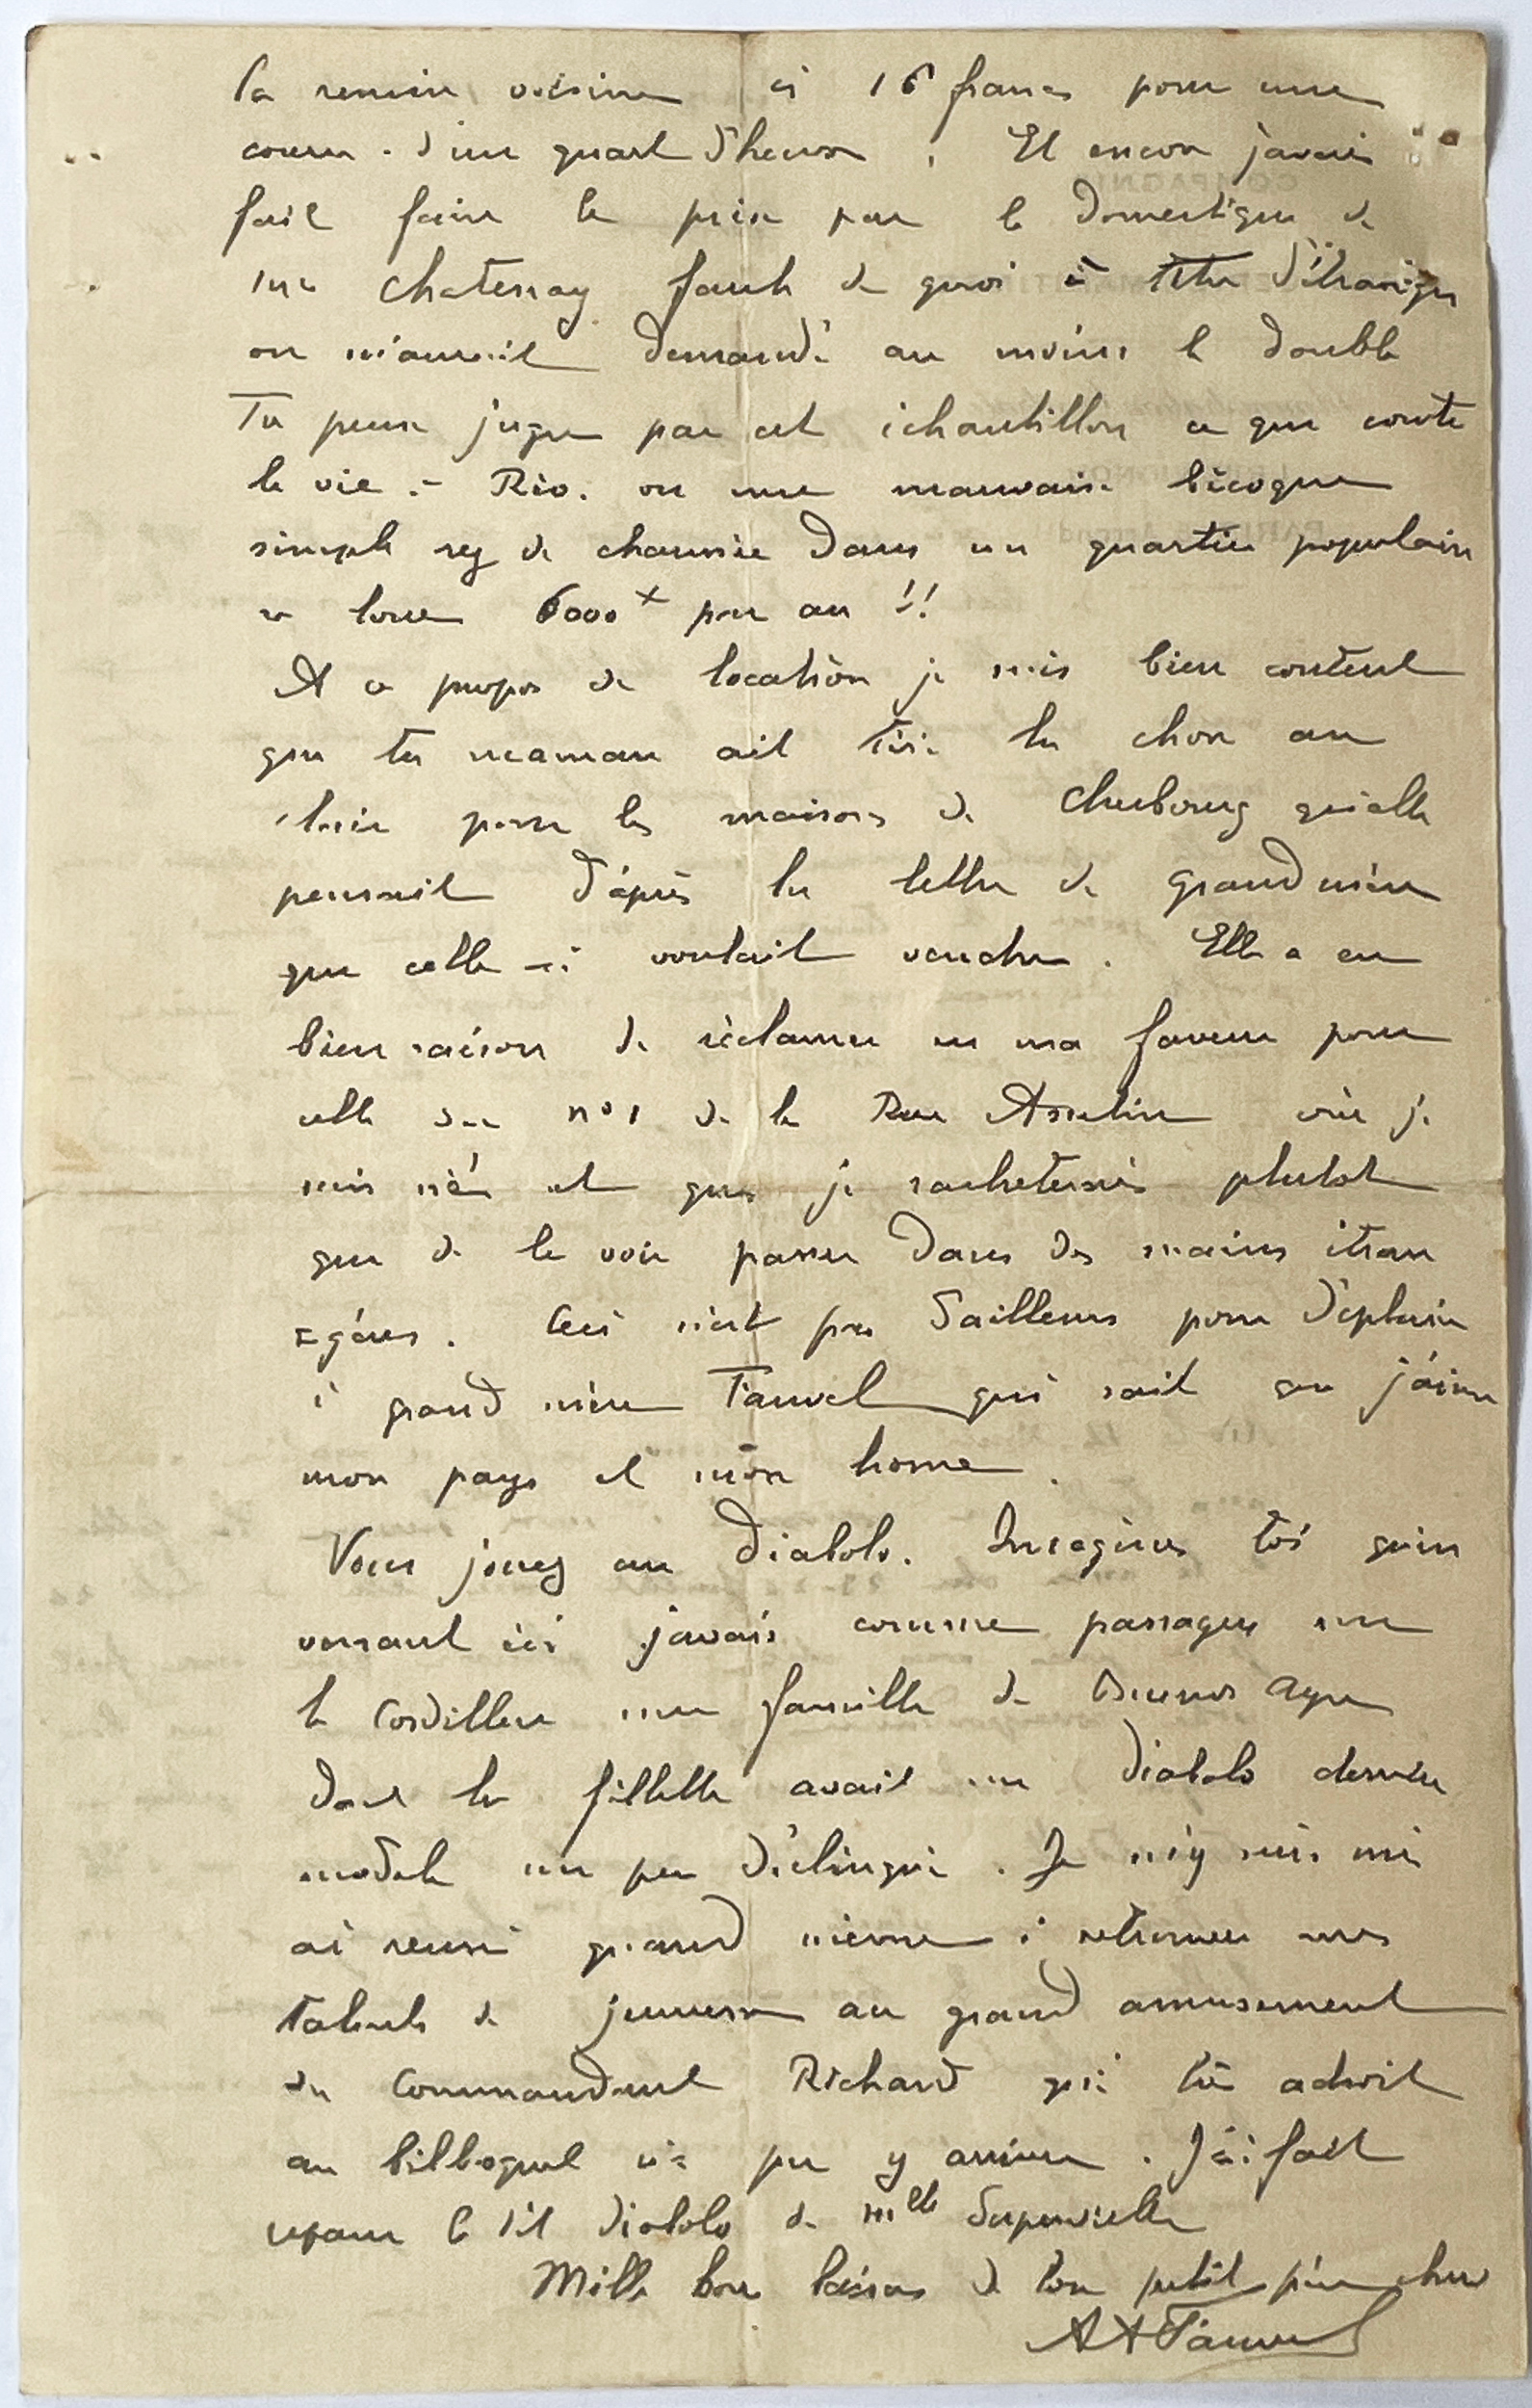 la remise voisine à 16 francs pour une
course d'un quart d'heure. Et encore j'avais
fait faire le prix par le domestique de
Mr Chatenay faute de quoi à titre d'étranger
on m'aurait demandé au moins le double
Tu peux juger par cet échantillon ce que coute
la vie à Rio. ou une mauvaise bicoque
simple rez de chaussée dans un quartier populaire
se loue 6000 par an !!
A ce propos de location je suis bien content
que ta maman ait tiré la chose au
clair pour les maisons de Cherbourg qu'elle
pensait d'après la lettre de grand mère
que celle-ci voulait vendre. Elle a eu
bien raison de réclamer en ma faveur pour
celle du n° 1 de la Rue Asselin où je
suis né et que je racheterais plutot
que de la voir passer dans des mains étran
=gères. Ceci n'est pas d'ailleurs pour déplaire
à grand mère Fauvel qui sait que j'aime
mon pays et mon home.
Vous jouez au Diabolo. Imagines toi qu'en
venant ici j'avais comme passagers sur
la Cordillère une famille de Buenos Ayres
dont la fillette avait un diabolo dernier
modèle un peu déglingué. Je m'y suis mis
ai reussi quand même à retrouver mes
talents de jeunesse au grand amusement
du Commandant Richard qui très adroit
au bilboquet n'a pu y arriver. J'ai fait
reparer le dit diabolo de Mlle Supervielle
Mille bons baisers de ton petit père cheri
A A Fauvel